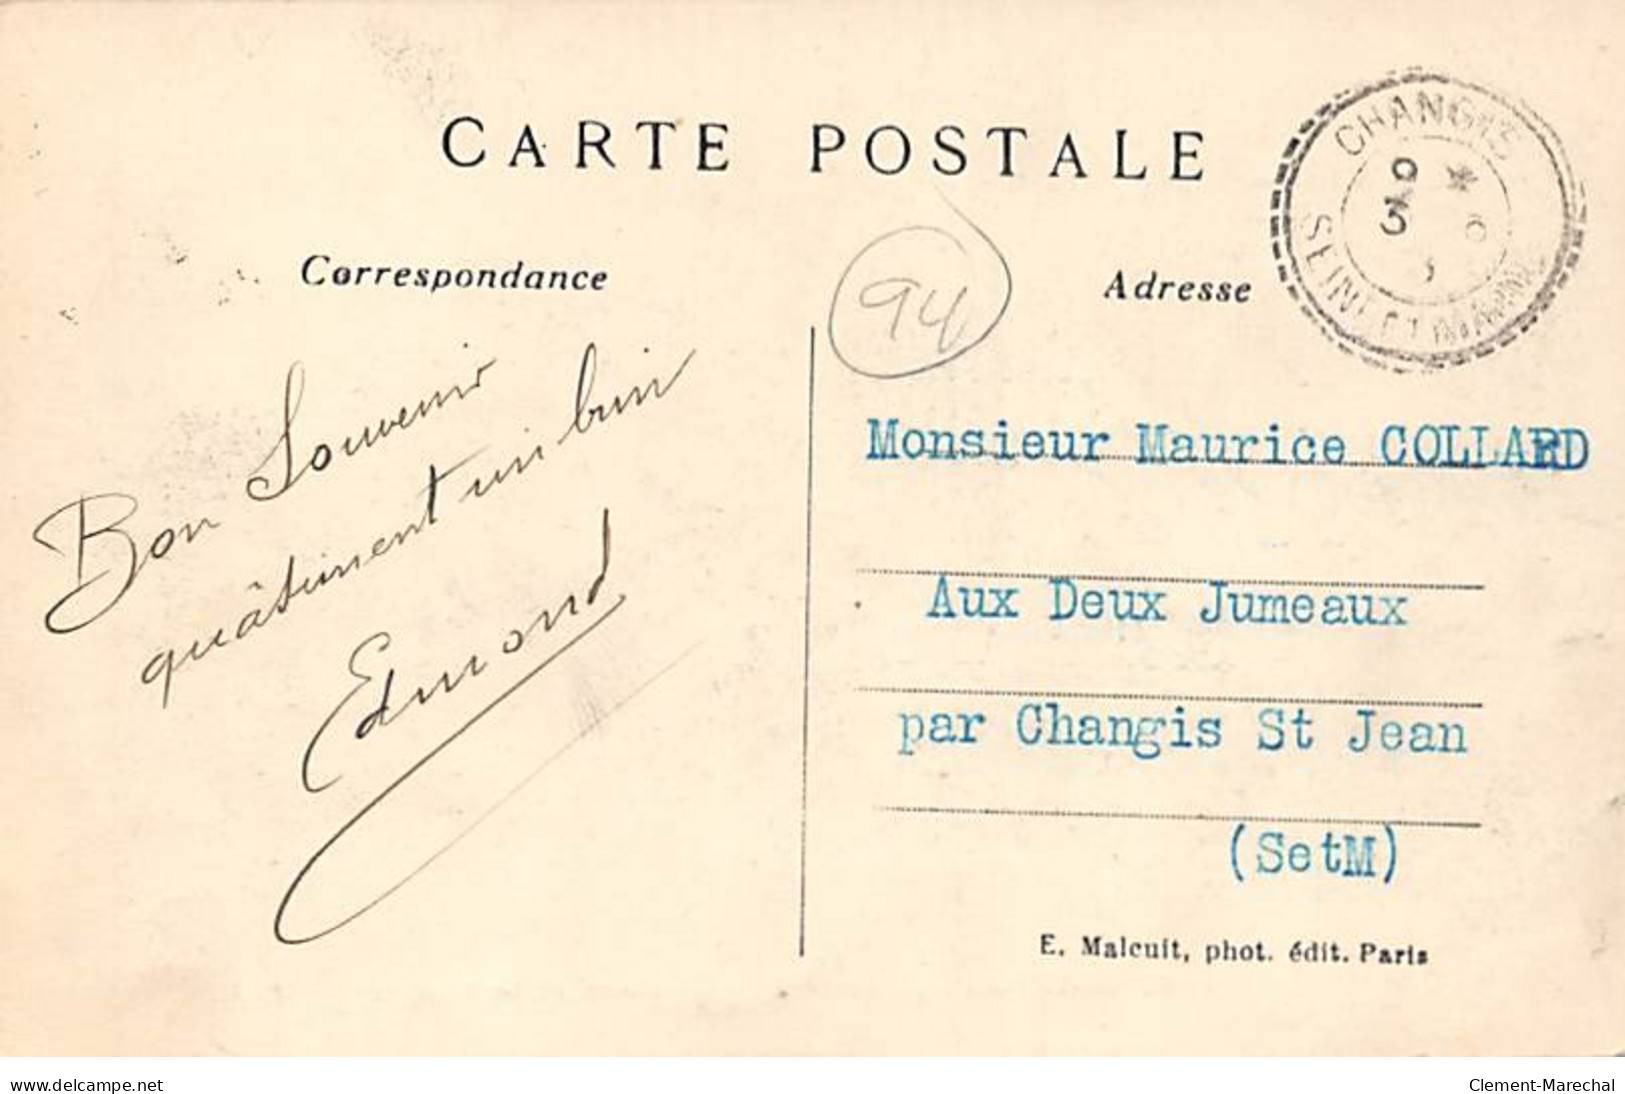 CARTE POSTALE
Correspondance
Adresse
94
CHANGIS
9 *
5 6
SEINE ET MARNE
Bon Souvenir
quâtiment un bun
Edmond
Monsieur Maurice COLLARD
Aux Deux Jumeaux
par Changis St Jean
(SetM)
E. Malcuit, phot. édit. Paris
www.delcampe.net
Clement-Marechal